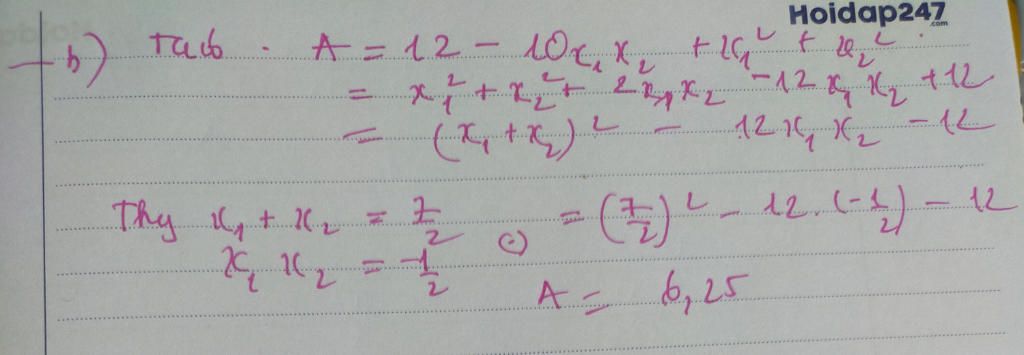 Hoidap247
.com
b) Ta có . A = 12 - 10x₁x₂ + x₁² + x₂²
= x₁² + x₂² + 2x₁x₂ - 12x₁x₂ + 12
= (x₁ + x₂)² - 12x₁x₂ - 12
Thy x₁ + x₂ = 7/2 = (7/2)² - 12.(-1/2) - 12
x₁x₂ = -1/2
A = 6,25